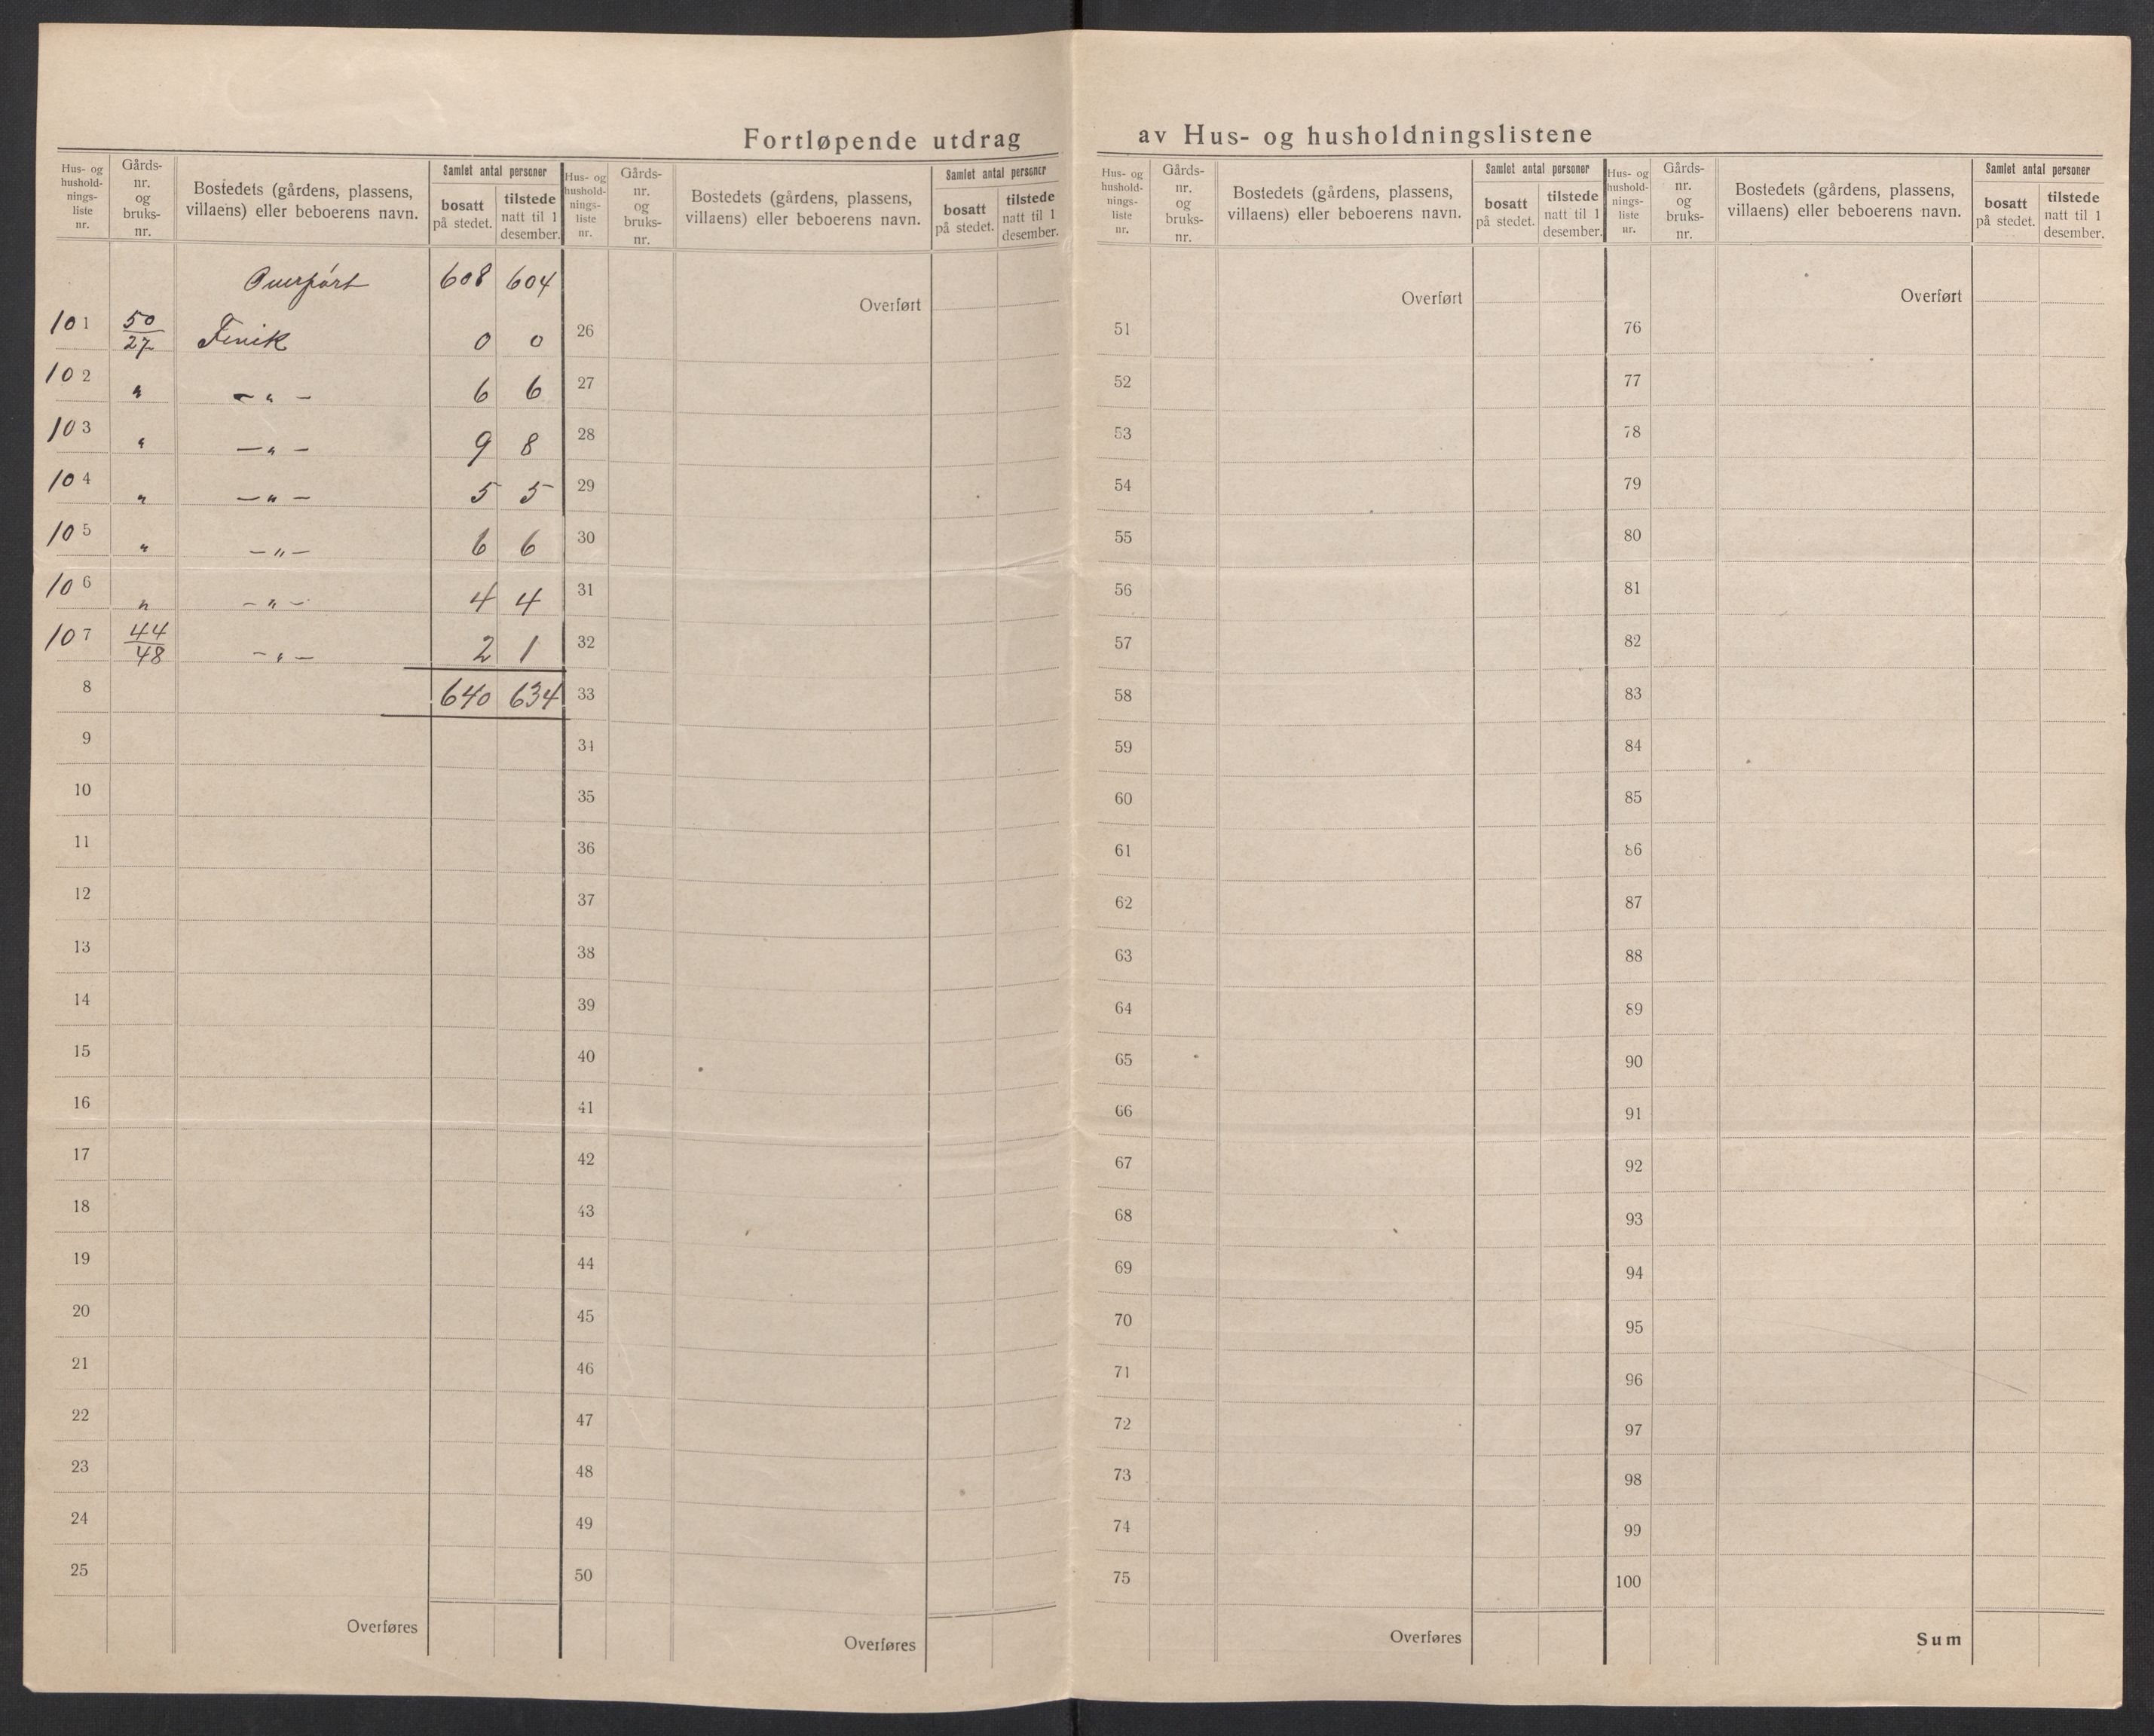 Fortløpende utdrag av Hus- og husholdningslistene
Hus- og hushold-nings-liste nr. Gårds-nr. og bruks-nr. Bostedets (gårdens, plassens, villaens) eller beboerens navn. Samlet antal personer bosatt på stedet. tilstede natt til 1 desember.
Overført 608 604
101 50/27 Fevik 0 0
102 " - " - 6 6
103 " - " - 9 8
104 " - " - 5 5
105 " - " - 6 6
106 " - " - 4 4
107 44/48 - " - 2 1
8 640 634
9
10
11
12
13
14
15
16
17
18
19
20
21
22
23
24
25
Overføres
Hus- og hushold-nings-liste nr. Gårds-nr. og bruks-nr. Bostedets (gårdens, plassens, villaens) eller beboerens navn. Samlet antal personer bosatt på stedet. tilstede natt til 1 desember.
Overført
26
27
28
29
30
31
32
33
34
35
36
37
38
39
40
41
42
43
44
45
46
47
48
49
50
Overføres
Hus- og hushold-nings-liste nr. Gårds-nr. og bruks-nr. Bostedets (gårdens, plassens, villaens) eller beboerens navn. Samlet antal personer bosatt på stedet. tilstede natt til 1 desember.
Overført
51
52
53
54
55
56
57
58
59
60
61
62
63
64
65
66
67
68
69
70
71
72
73
74
75
Overføres
Hus- og hushold-nings-liste nr. Gårds-nr. og bruks-nr. Bostedets (gårdens, plassens, villaens) eller beboerens navn. Samlet antal personer bosatt på stedet. tilstede natt til 1 desember.
Overført
76
77
78
79
80
81
82
83
84
85
86
87
88
89
90
91
92
93
94
95
96
97
98
99
100
Sum